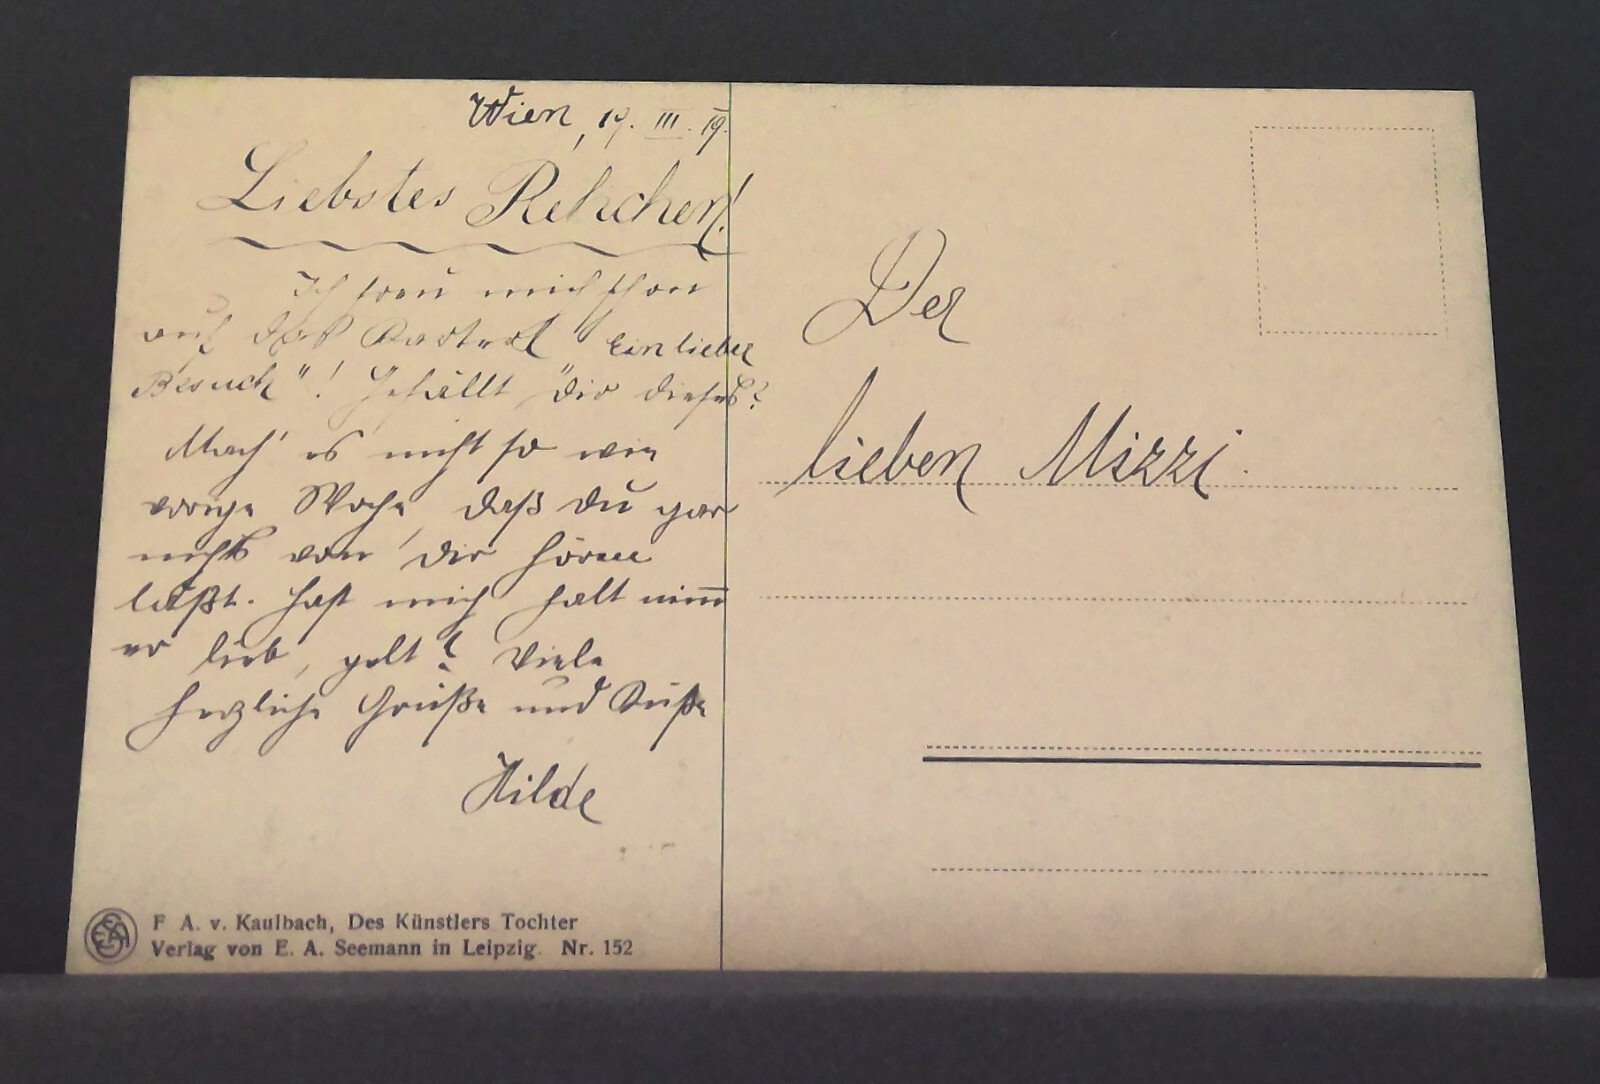 Wien, 19. III. 19.
Liebstes Rehchen!
Ich freu mich schon
auf das Kasterl "Ein lieber
Besuch"! Gefällt Dir dieses?
Mach' es nicht so wie
vorige Woche, daß Du gar
nichts von Dir hören
läßt. Hast mich halt nim̅
er lieb, gelt? Viele
herzliche Grüße und Küsse
Hilde
F. A. v. Kaulbach, Des Künstlers Tochter
Verlag von E. A. Seemann in Leipzig. Nr. 152
Der
lieben Mizzi.